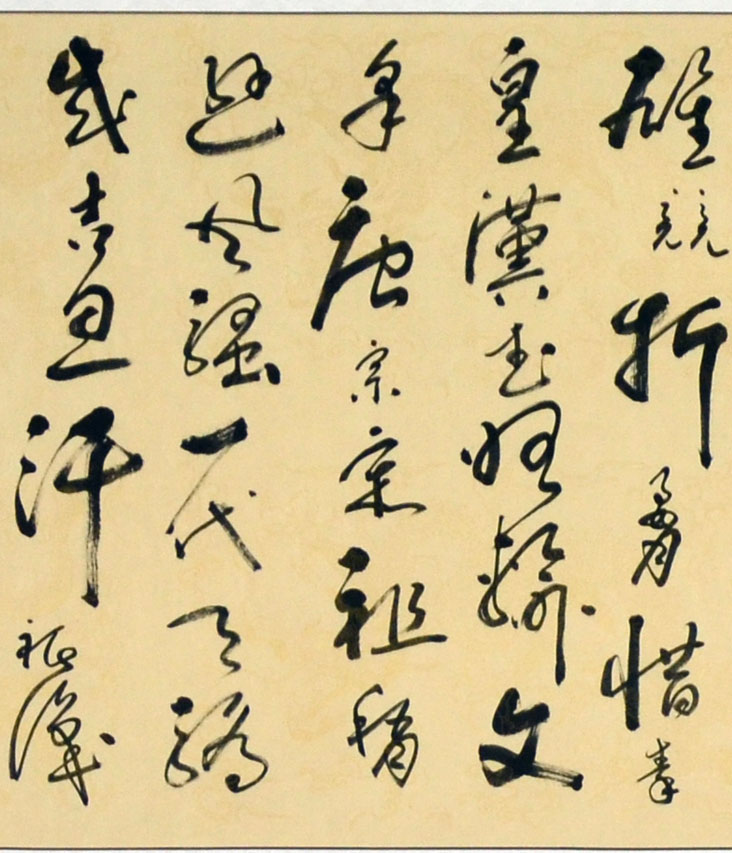 雄競折腰惜秦
皇漢武略輸文
采唐宗宋祖稍
遜風騷一代天驕
成吉思汗識